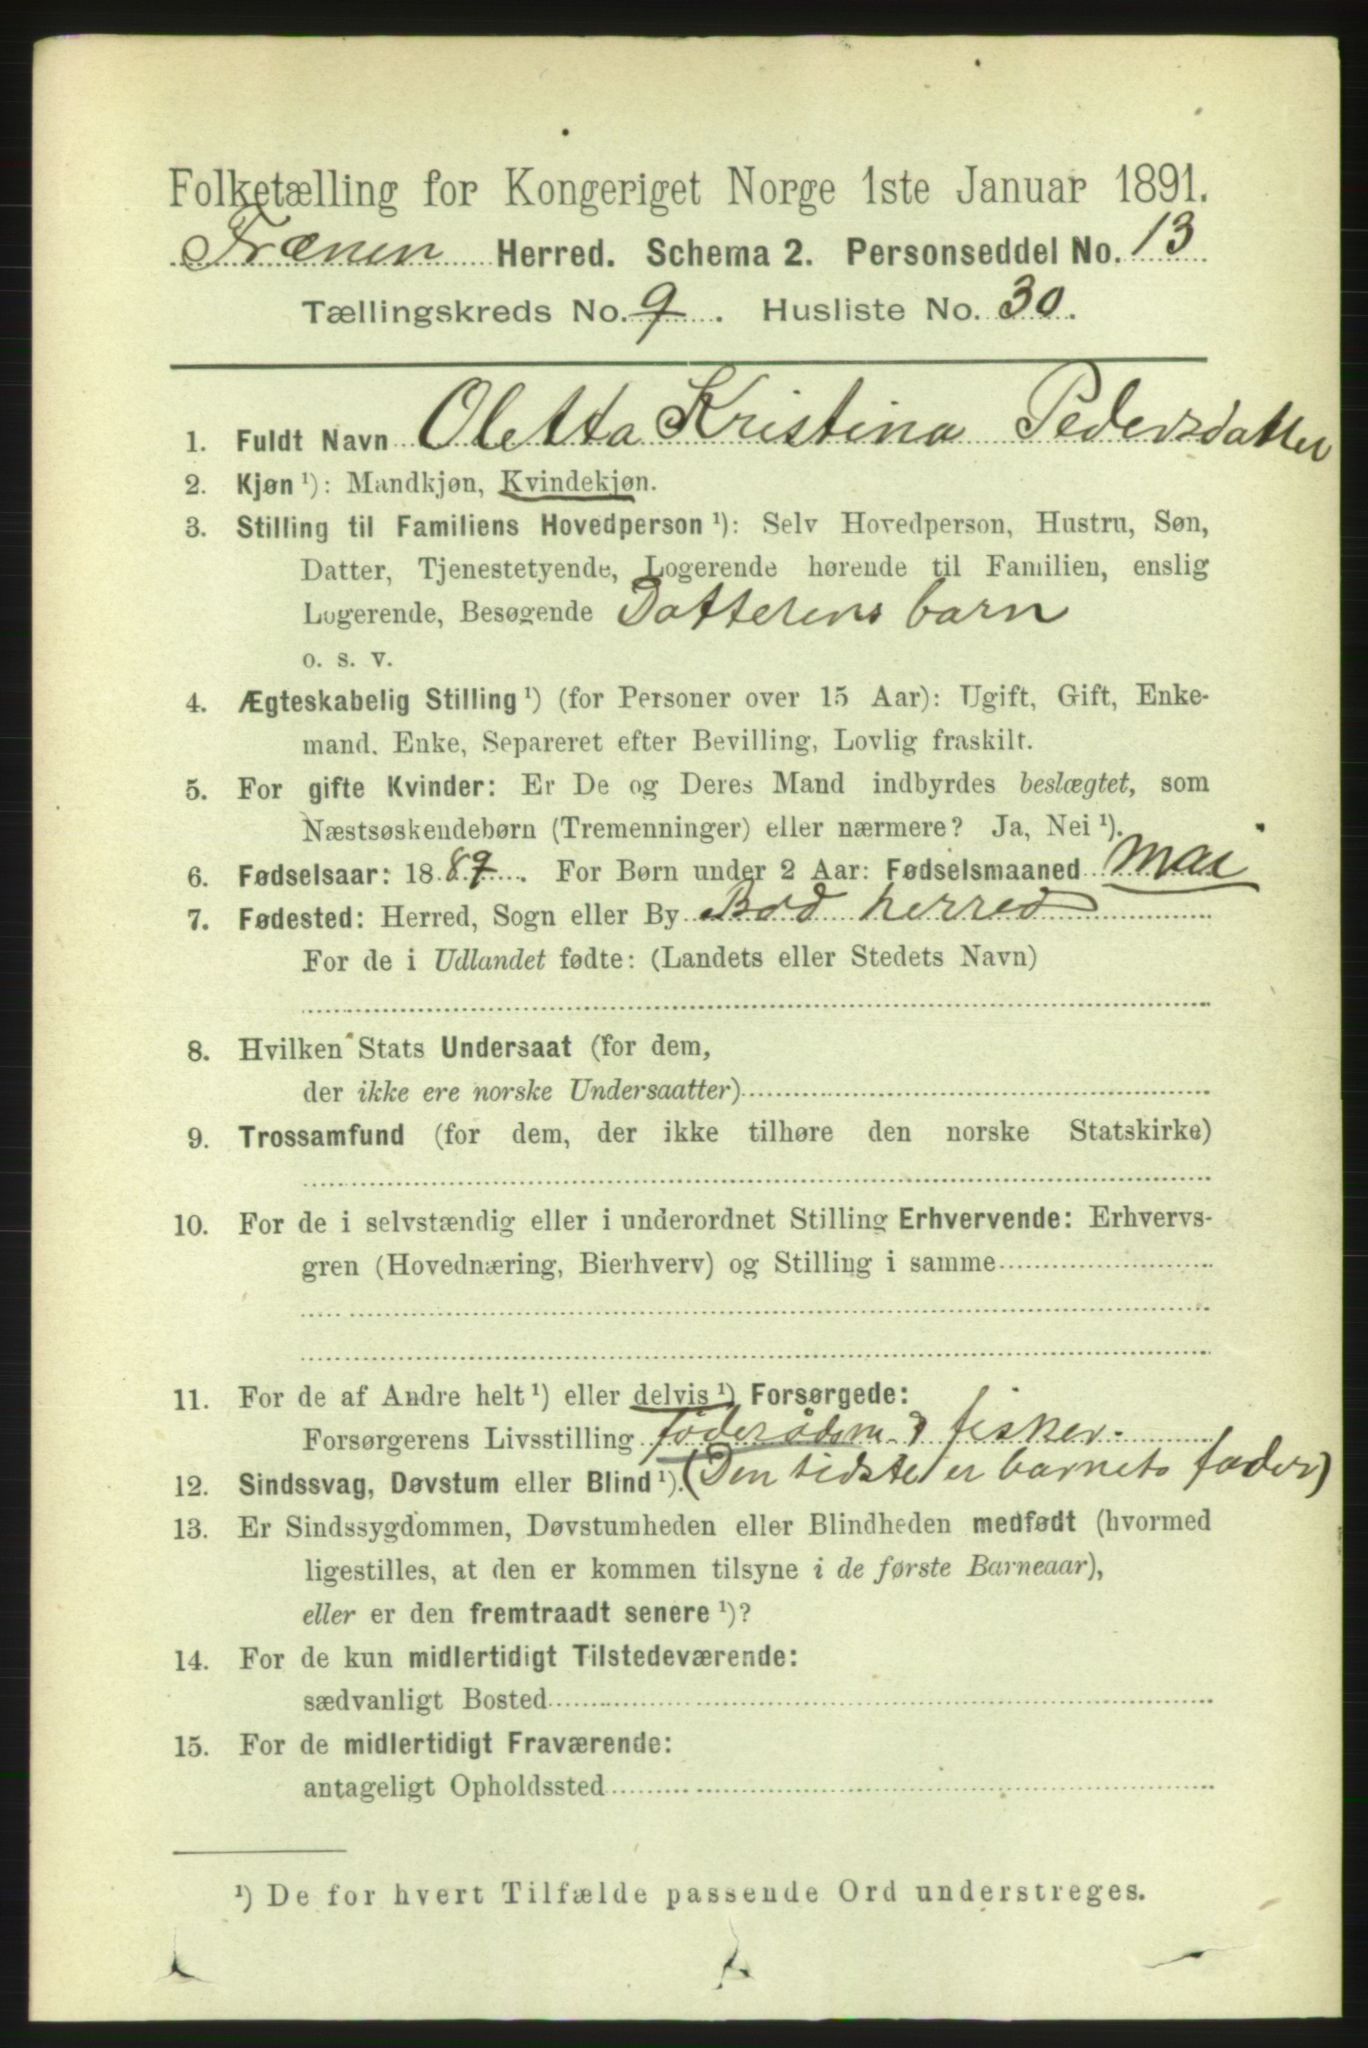 Folketælling for Kongeriget Norge 1ste Januar 1891.
Frænen Herred. Schema 2. Personseddel No. 13
Tællingskreds No. 9. Husliste No. 30.
1. Fuldt Navn Oletta Kristina Pedersdatter
2. Kjøn ¹): Mandkjøn, Kvindekjøn.
3. Stilling til Familiens Hovedperson ¹): Selv Hovedperson, Hustru, Søn,
Datter, Tjenestetyende, Logerende hørende til Familien, enslig
Logerende, Besøgende Datterens barn
o. s. v.
4. Ægteskabelig Stilling ¹) (for Personer over 15 Aar): Ugift, Gift, Enke-
mand, Enke, Separeret efter Bevilling, Lovlig fraskilt.
5. For gifte Kvinder: Er De og Deres Mand indbyrdes beslægtet, som
Næstsøskendebørn (Tremenninger) eller nærmere? Ja, Nei ¹).
6. Fødselsaar: 1889. For Børn under 2 Aar: Fødselsmaaned mai
7. Fødested: Herred, Sogn eller By Bod herred
For de i Udlandet fødte: (Landets eller Stedets Navn)
8. Hvilken Stats Undersaat (for dem,
der ikke ere norske Undersaatter)
9. Trossamfund (for dem, der ikke tilhøre den norske Statskirke)
10. For de i selvstændig eller i underordnet Stilling Erhvervende: Erhvervs-
gren (Hovednæring, Bierhverv) og Stilling i samme
11. For de af Andre helt ¹) eller delvis ¹) Forsørgede:
Forsørgerens Livsstilling föderådsm. fisker.
12. Sindssvag, Døvstum eller Blind ¹). (Den sidste er barnets fader)
13. Er Sindssygdommen, Døvstumheden eller Blindheden medfødt (hvormed
ligestilles, at den er kommen tilsyne i de første Barneaar),
eller er den fremtraadt senere ¹)?
14. For de kun midlertidigt Tilstedeværende:
sædvanligt Bosted
15. For de midlertidigt Fraværende:
antageligt Opholdssted
¹) De for hvert Tilfælde passende Ord understreges.